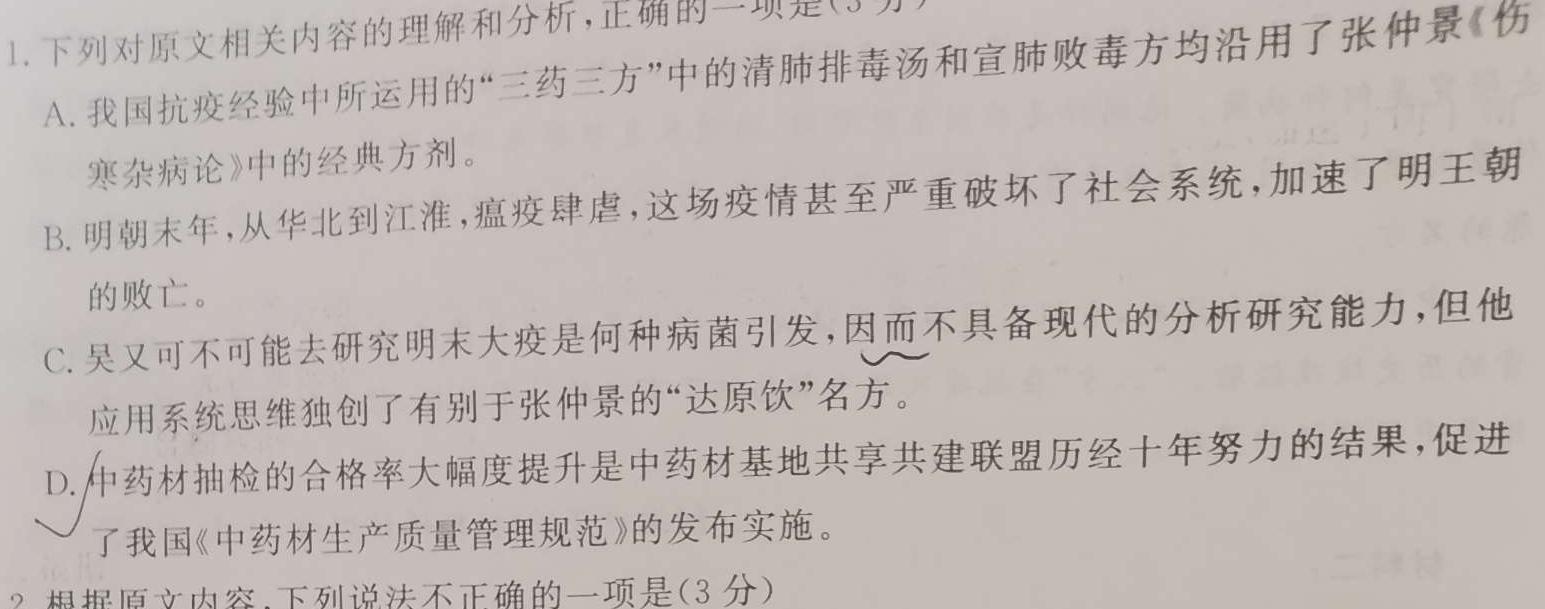 1. 下列对原文相关内容的理解和分析,正确的一项是(3分)
A. 我国抗疫经验中所运用的“三药三方”中的清肺排毒汤和宣肺败毒方均沿用了张仲景《伤
寒杂病论》中的经典方剂。
B. 明朝末年,从华北到江淮,瘟疫肆虐,这场疫情甚至严重破坏了社会系统,加速了明王朝
的败亡。
C. 吴又可不可能去研究明末大疫是何种病菌引发,因而不具备现代的分析研究能力,但他
应用系统思维独创了有别于张仲景的“达原饮”名方。
D. 中药材抽检的合格率大幅度提升是中药材基地共享共建联盟历经十年努力的结果,促进
了我国《中药材生产质量管理规范》的发布实施。
2. 根据原文内容,下列说法不正确的一项是(3分)